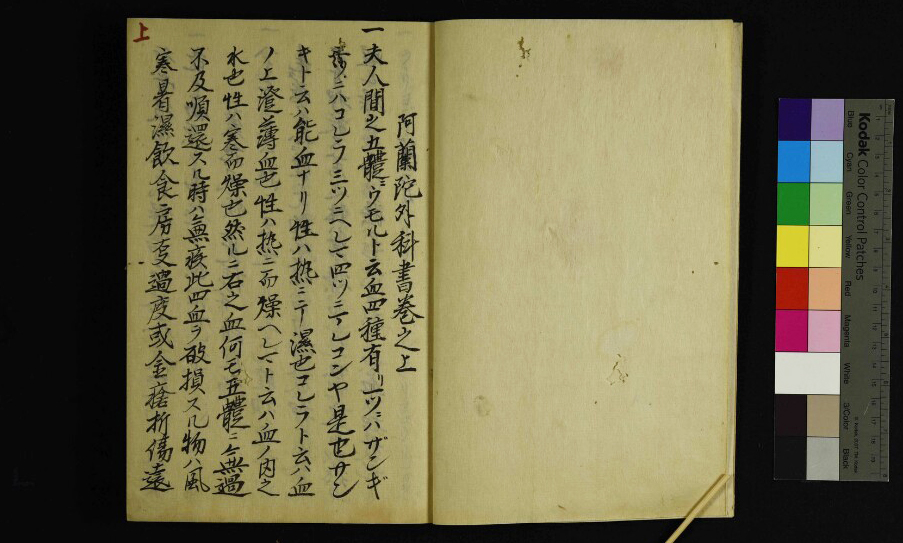 阿蘭陀外科書巻之上
一夫人間之五體ニウモルト云血四種有リ一ツニハザンギ
ニハコレラ三ツニヘレマ四ツニマレコンヤ是也サン
キト云ハ能血ナリ性ハ热ニ〆濕也コレラト云ハ血
ノ上澄薄血也性ハ热ニ而燥ヘレマト云ハ血ノ内之
水也性ハ寒而燥也然ルニ右之血何モ五體ニ無過
不及順還スル時ハ無疾此四血ヲ破損スル物ハ風
寒暑濕飲食房支過度或金瘡折傷遠
上
Kodak Color Control Patches
Blue
Cyan
Green
Yellow
Red
Magenta
White
3/Color
Black